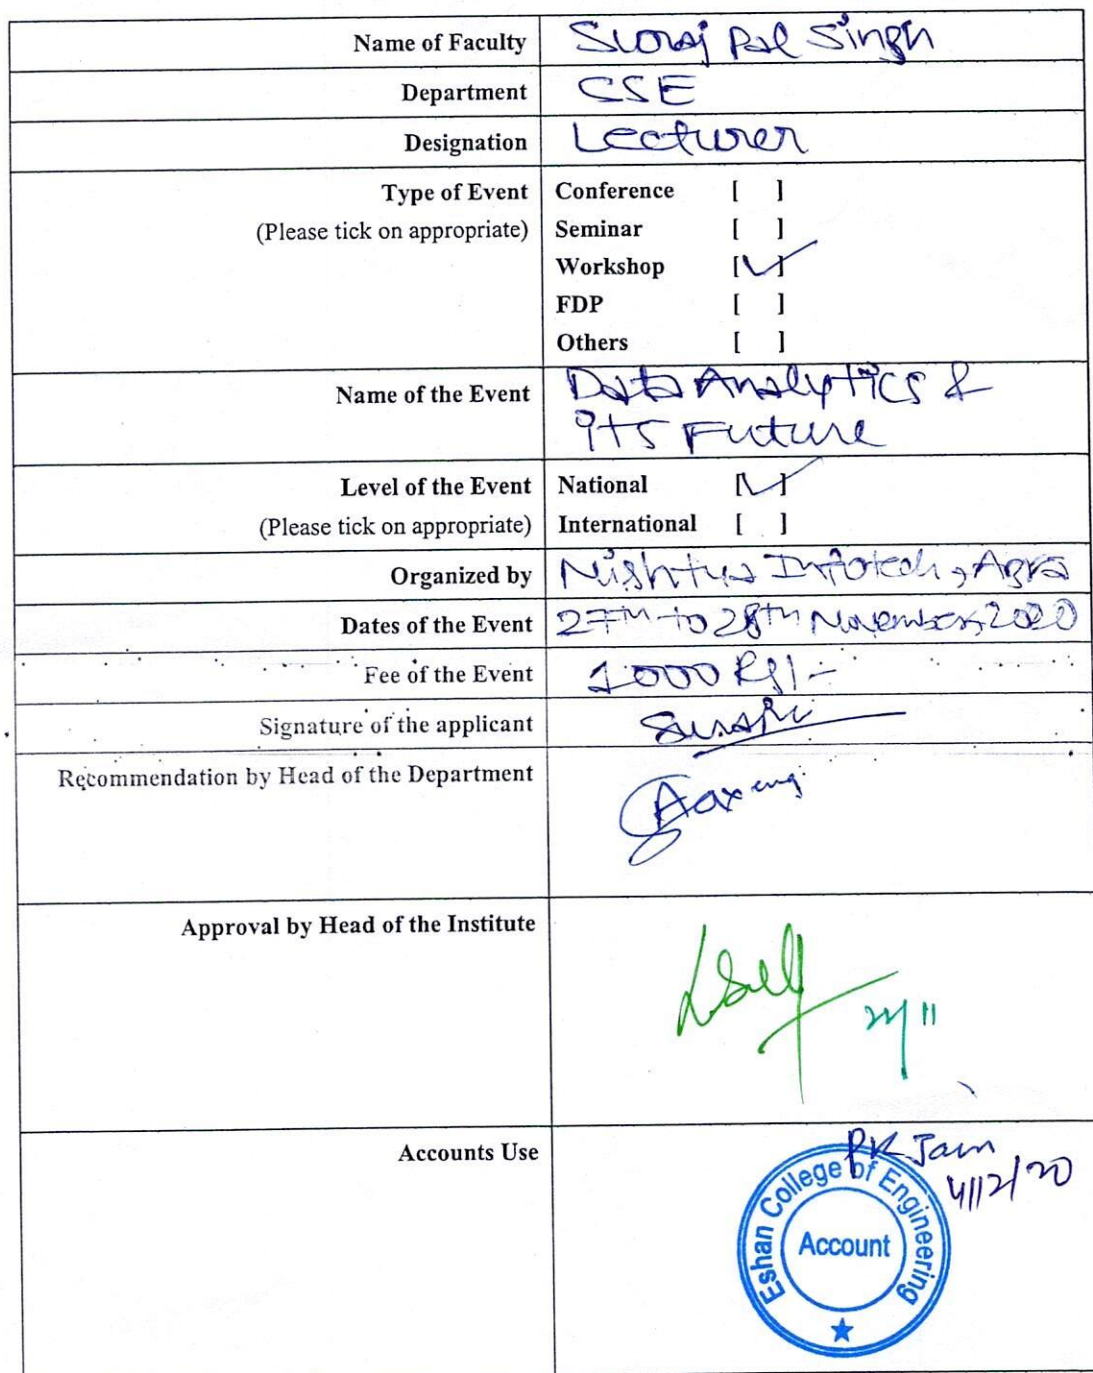 Name of Faculty Suraj Pal Singh
Department CSE
Designation Lecturer
Type of Event Conference [ ]
(Please tick on appropriate) Seminar [ ]
Workshop [✓]
FDP [ ]
Others [ ]
Name of the Event Data Analytics &
its Future
Level of the Event National [✓]
(Please tick on appropriate) International [ ]
Organized by Nishtya Infotech, Agra
Dates of the Event 27th to 28th November, 2020
Fee of the Event 1000 Rs/-
Signature of the applicant
Recommendation by Head of the Department
Approval by Head of the Institute
Accounts Use PK Jain
4/12/20
Eshan College of Engineering
Account